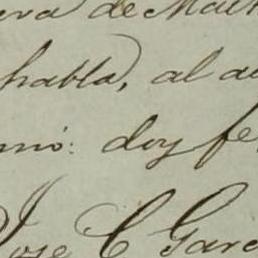 era de Mait
habla, al au
mó: doy fe
Jose C Garc